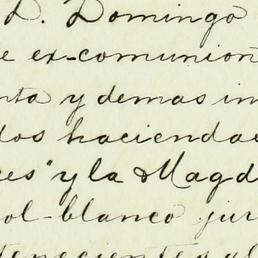 D. Domingo
e ex-comunion
nta y demas in
dos haciendas
es" y la Magd
ol-blanco jur
tenecientes al